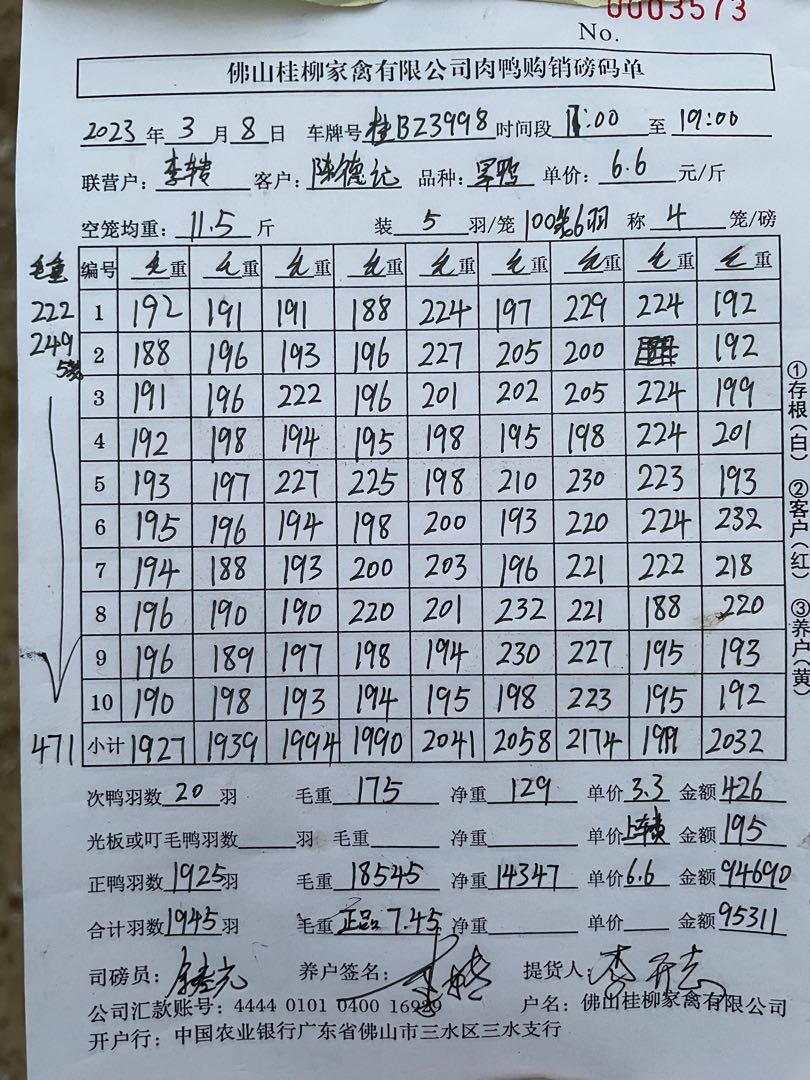 No. 0003573
佛山桂柳家禽有限公司肉鸭购销磅码单
2023 年 3 月 8 日 车牌号 桂BZ3998 时间段 11:00 至 19:00
联营户: 李 客户: 陈德记 品种: 单价: 6.6 元/斤
空笼均重: 11.5 斤 装 5 羽/笼 100笼6羽 称 4 笼/磅
毛重 编号 毛重 毛重 毛重 毛重 毛重 毛重 毛重 毛重 毛重
222 1 192 191 191 188 224 197 229 224 192
249 2 188 196 193 196 227 205 200 192
5笼 3 191 196 222 196 201 202 205 224 199
4 192 198 194 195 198 195 198 224 201
5 193 197 227 225 198 210 230 223 193
6 195 196 194 198 200 193 220 224 232
7 194 188 193 200 203 196 221 222 218
8 196 190 190 220 201 232 221 188 220
9 196 189 197 198 194 230 227 195 193
10 190 198 193 194 195 198 223 195 192
471 小计 1927 1939 1994 1990 2041 2058 2174 1919 2032
次鸭羽数 20 羽 毛重 175 净重 129 单价 3.3 金额 426
光板或叮毛鸭羽数 羽 毛重 净重 单价 上车费 金额 195
正鸭羽数 1925 羽 毛重 18545 净重 14347 单价 6.6 金额 94690
合计羽数 1945 羽 毛重 正品: 7.45 净重 单价 金额 95311
司磅员: 养户签名: 李 提货人: 李开志
公司汇款账号: 4444 0101 0400 16929 户名: 佛山桂柳家禽有限公司
开户行: 中国农业银行广东省佛山市三水区三水支行
①存根(白) ②客户(红) ③养户(黄)